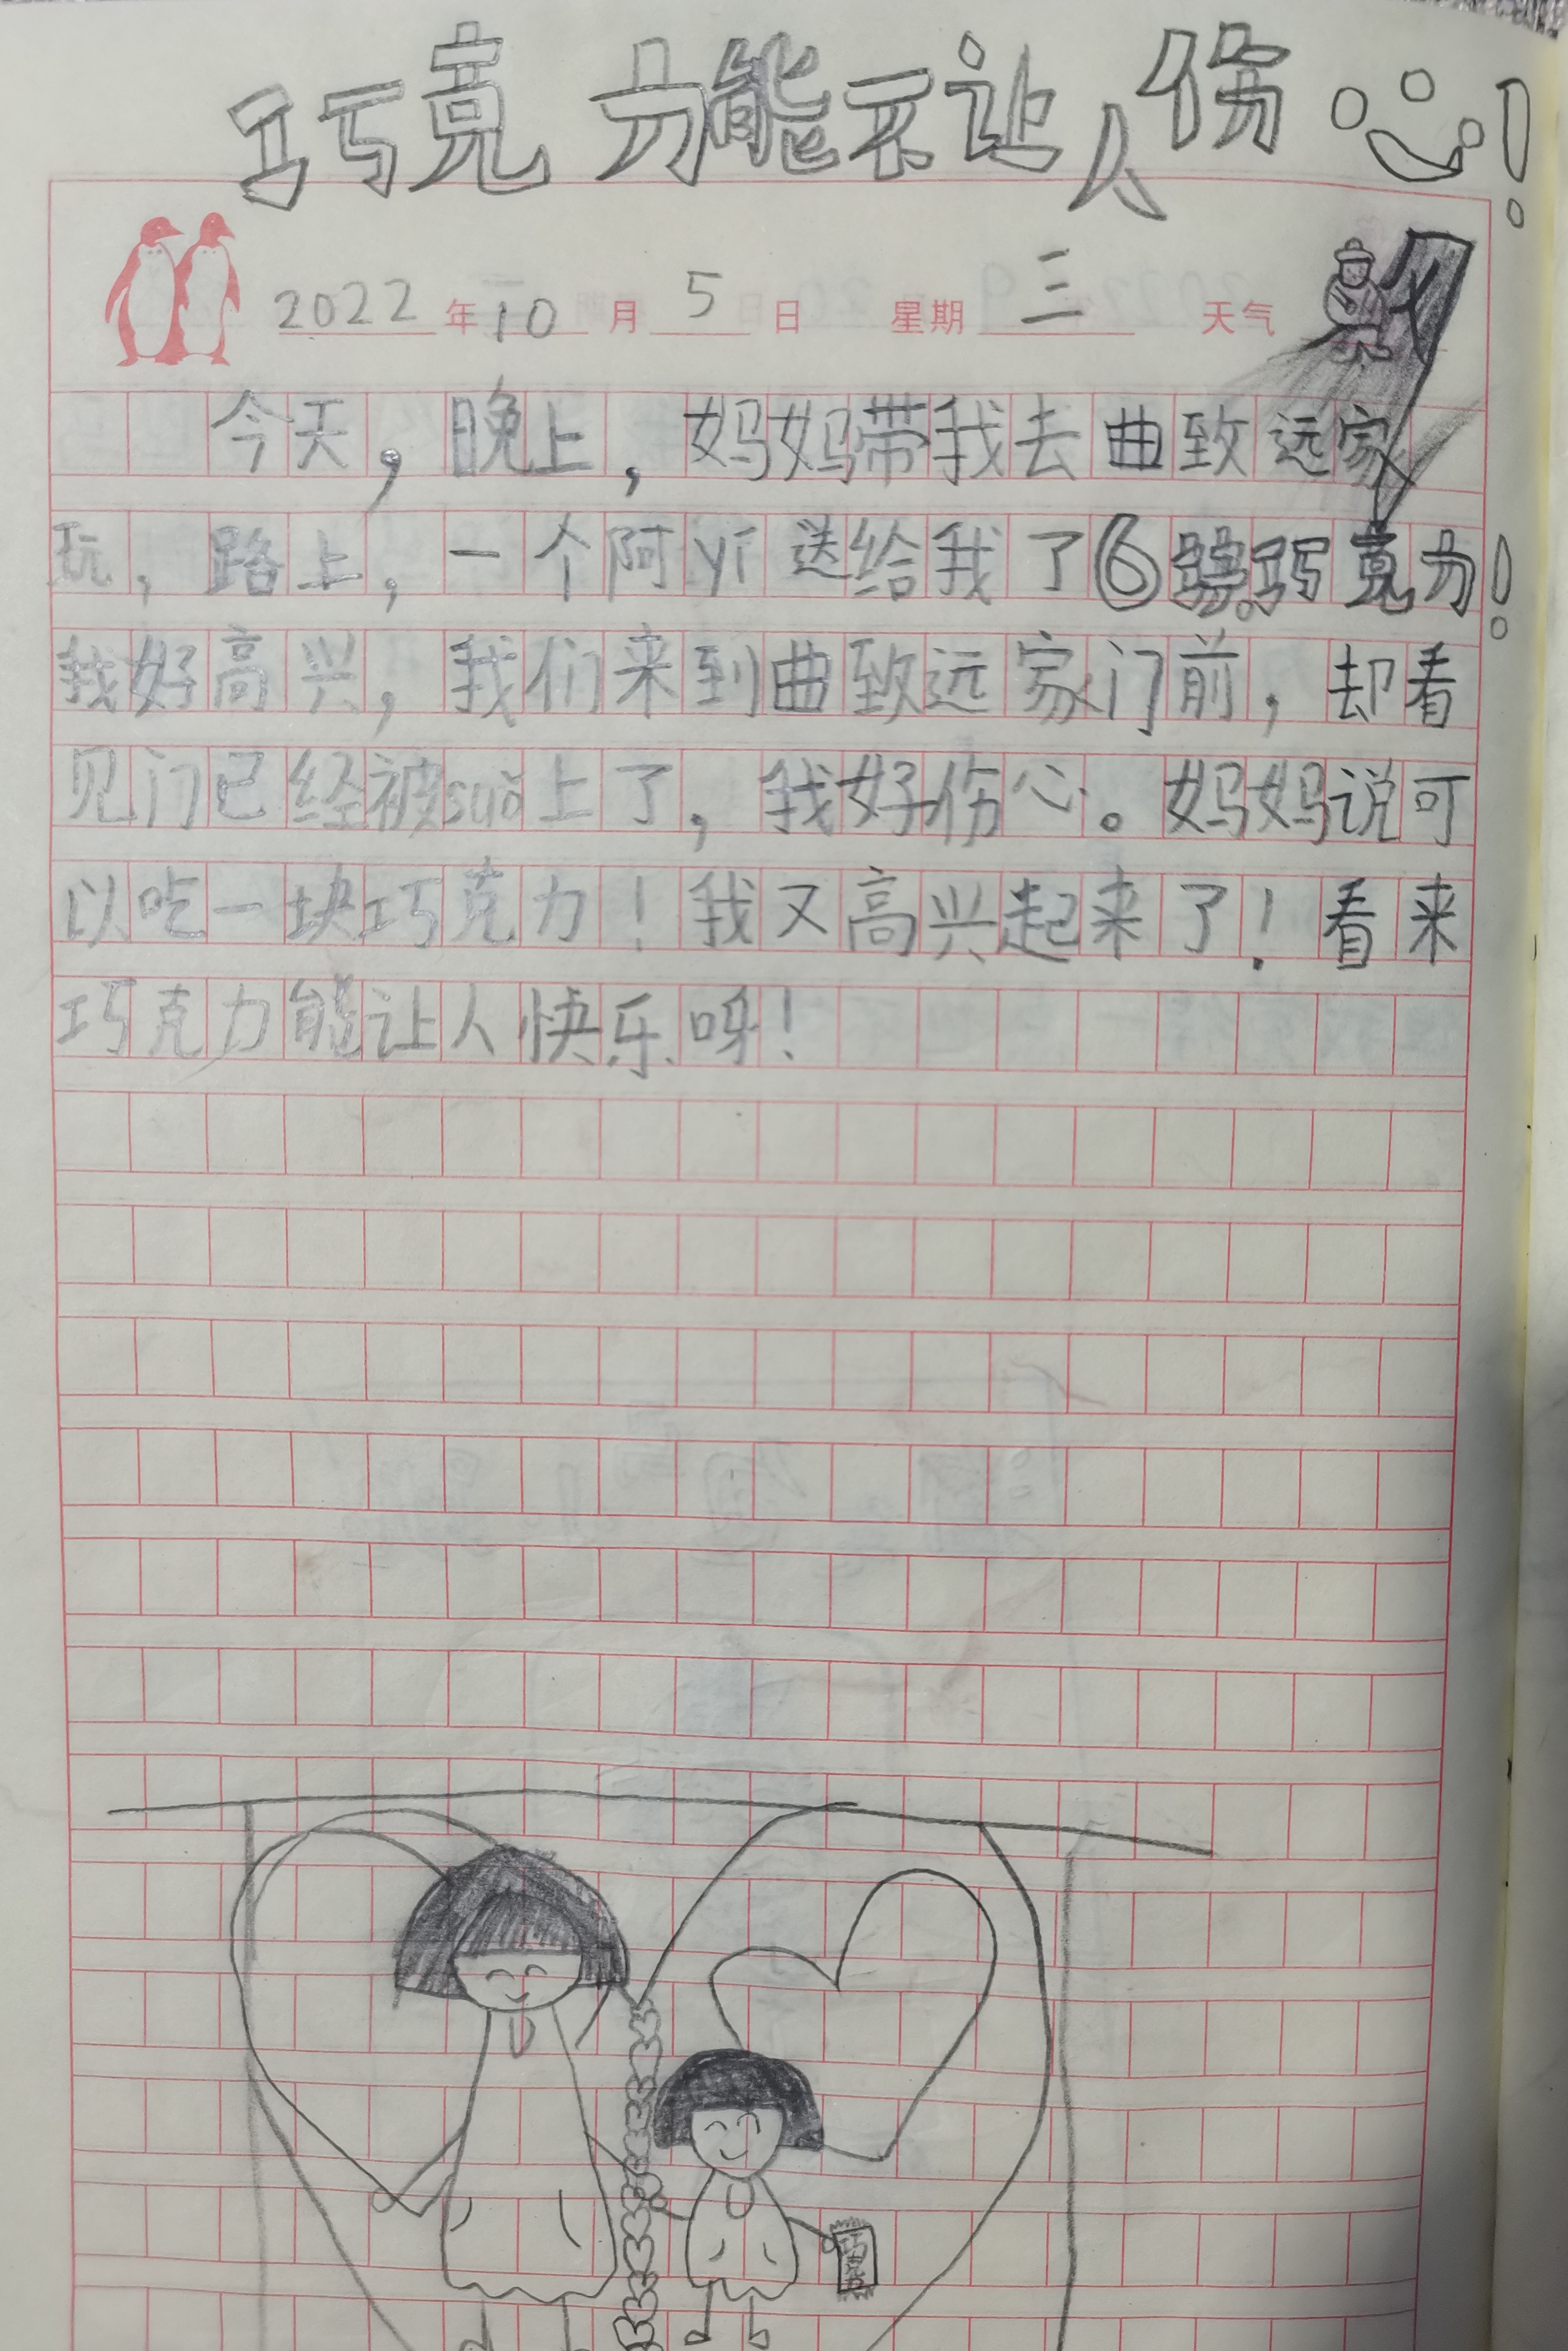 巧克力能不让人伤心!
2022年10月5日 星期三 天气
今天,晚上,妈妈带我去曲致远家
玩,路上,一个阿yí送给我了⑥巧克力!
我好高兴,我们来到曲致远家门前,却看
见门已经被suǒ上了,我好伤心。妈妈说可
以吃一块巧克力!我又高兴起来了!看来
巧克力能让人快乐呀!